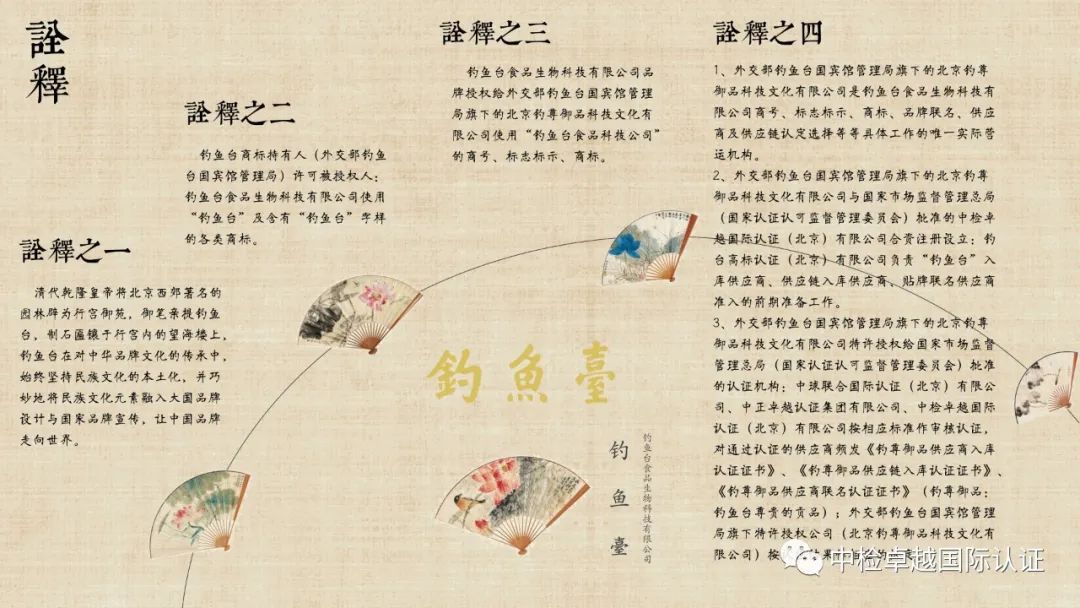 詮釋
詮釋之一
清代乾隆皇帝将北京西郊著名的
园林辟为行宫御苑，御笔亲提钓鱼
台，制石匾镶于行宫内的望海楼上，
钓鱼台在对中华品牌文化的传承中，
始终坚持民族文化的本土化，并巧
妙地将民族文化元素融入大国品牌
设计与国家品牌宣传，让中国品牌
走向世界。
詮釋之二
钓鱼台商标持有人（外交部钓鱼
台国宾馆管理局）许可被授权人：
钓鱼台食品生物科技有限公司使用
“钓鱼台”及含有“钓鱼台”字样
的各类商标。
詮釋之三
钓鱼台食品生物科技有限公司品
牌授权给外交部钓鱼台国宾馆管理
局旗下的北京钓尊御品科技文化有
限公司使用“钓鱼台食品科技公司”
的商号、标志标示、商标。
詮釋之四
1、外交部钓鱼台国宾馆管理局旗下的北京钓尊
御品科技文化有限公司是钓鱼台食品生物科技有
限公司商号、标志标示、商标、品牌联名、供应
商及供应链认定选择等等具体工作的唯一实际营
运机构。
2、外交部钓鱼台国宾馆管理局旗下的北京钓尊
御品科技文化有限公司与国家市场监督管理总局
（国家认证认可监督管理委员会）批准的中检卓
越国际认证（北京）有限公司合资注册设立：钓
台高标认证（北京）有限公司负责“钓鱼台”入
库供应商、供应链入库供应商、贴牌联名供应商
准入的前期准备工作。
3、外交部钓鱼台国宾馆管理局旗下的北京钓尊
御品科技文化有限公司特许授权给国家市场监督
管理总局（国家认证认可监督管理委员会）批准
的认证机构：中球联合国际认证（北京）有限公
司、中正卓越认证集团有限公司、中检卓越国际
认证（北京）有限公司按相应标准作审核认证，
对通过认证的供应商频发《钓尊御品供应商入库
认证证书》、《钓尊御品供应链入库认证证书》、
《钓尊御品供应商联名认证证书》（钓尊御品：
钓鱼台尊贵的贡品）；外交部钓鱼台国宾馆管理
局旗下特许授权公司（北京钓尊御品科技文化有
限公司）按
釣魚臺
钓鱼臺
钓鱼台食品生物科技有限公司
中检卓越国际认证